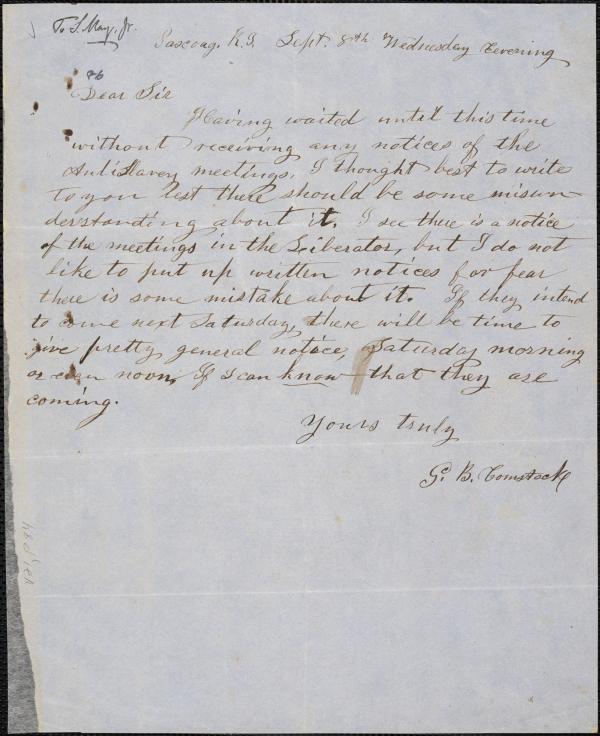 To S. May, Jr.
Pascoag, R.I. Sept. 8th Wednesday Evening
Dear Sir
Having waited until this time
without receiving any notices of the
AntiSlavery meetings, I thought best to write
to you lest there should be some misun-
derstanding about it. I see there is a notice
of the meetings in the Liberator, but I do not
like to put up written notices for fear
there is some mistake about it. If they intend
to come next Saturday, there will be time to
give pretty general notice, Saturday morning
or even noon, If I can know that they are
coming.
Yours truly
G. B. Comstock